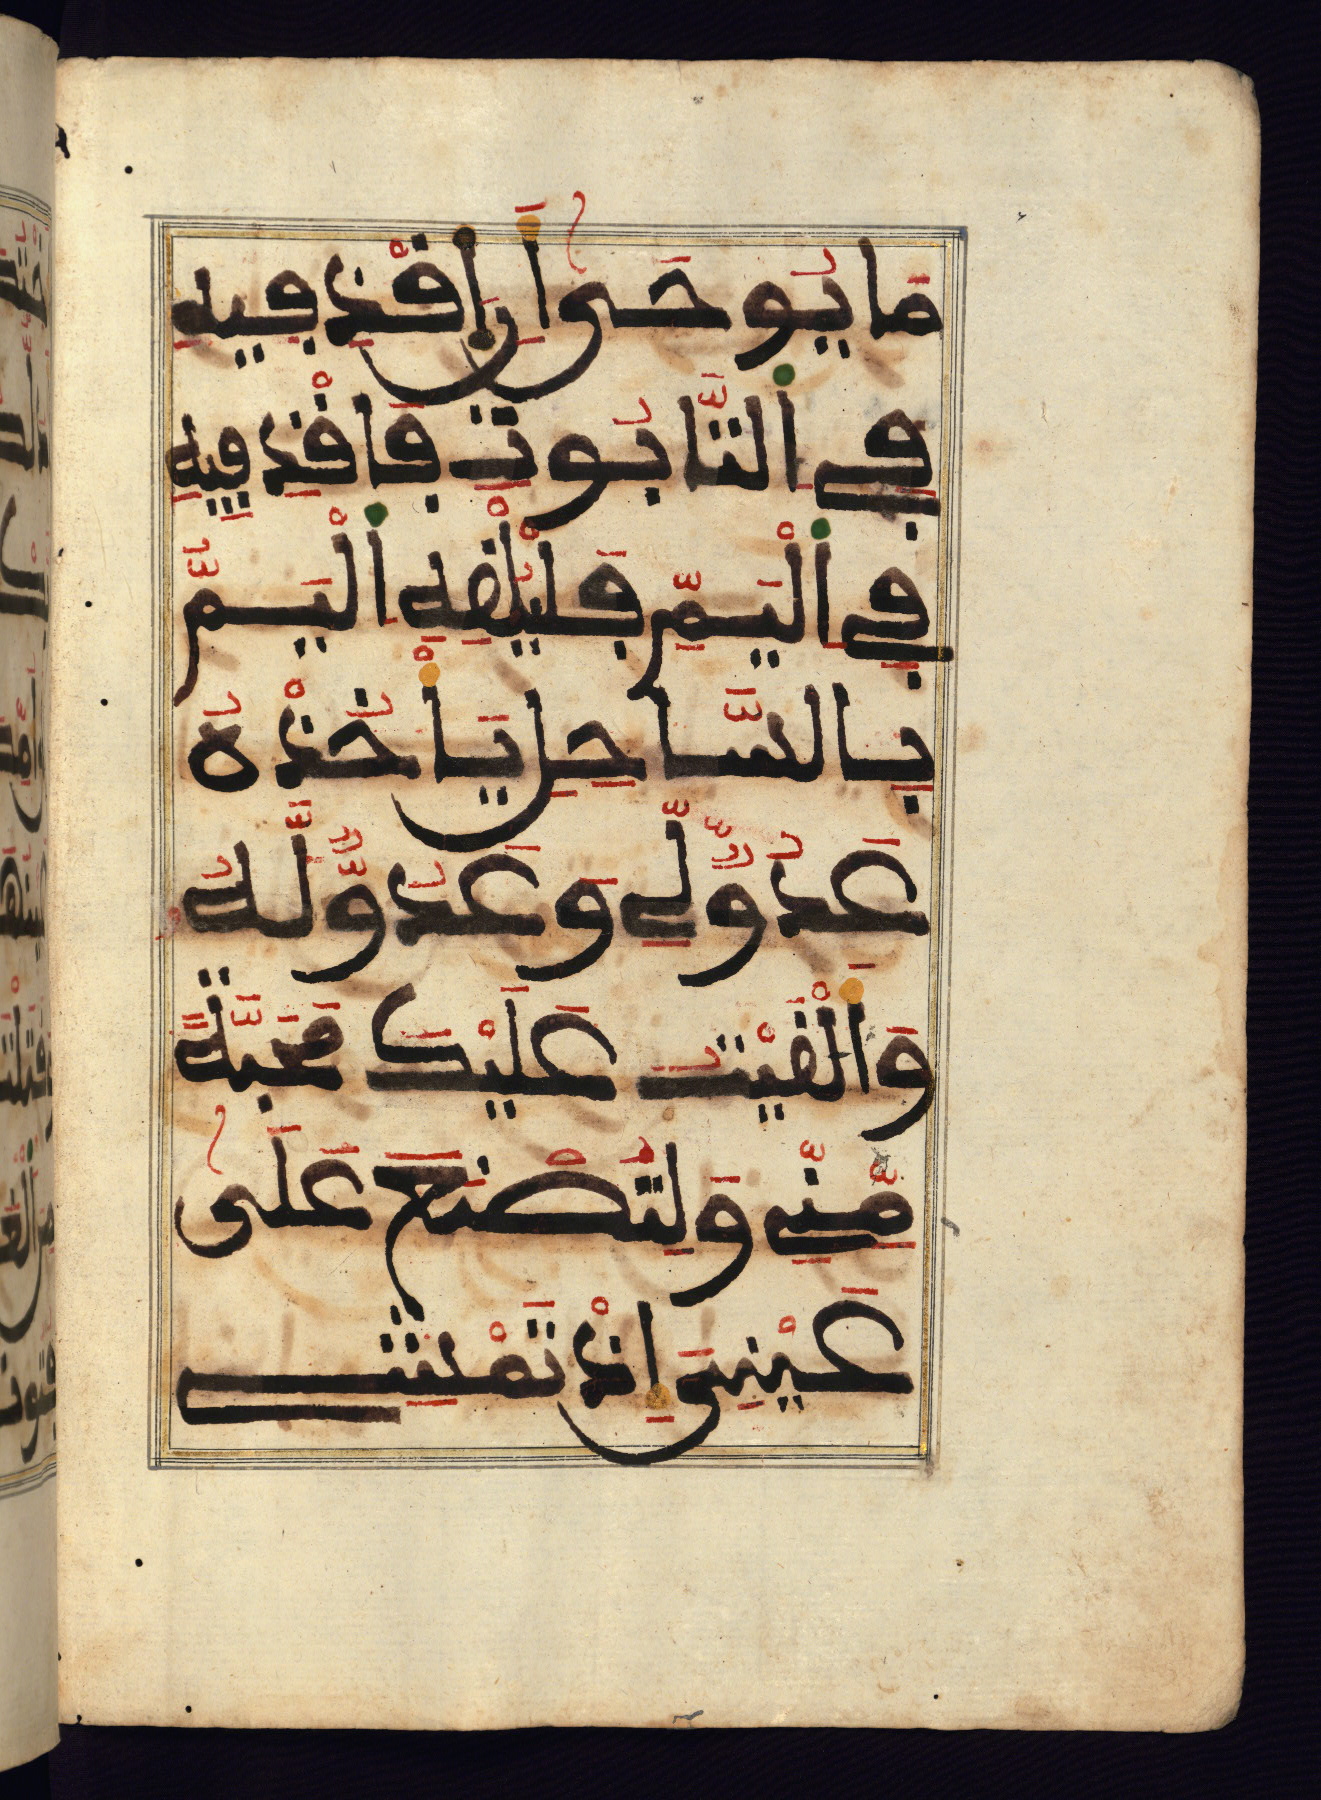 مَا يُوحَىٰ أَنِ اِقْذِفِيهِ
فِي اِلتَّابُوتِ فَاقْذِفِيهِ
فِي اِلْيَمِّ فَلْيُلْقِهِ اِلْيَمُّ
بِالسَّاحِلِ يَأْخُذْهُ
عَدُوٌّ لِّي وَعَدُوٌّ لَّهُ
وَأَلْقَيْتُ عَلَيْكَ مَحَبَّةً
مِّنِّي وَلِتُصْنَعَ عَلَىٰ
عَيْنِيَ إِذْ تَمْشِي